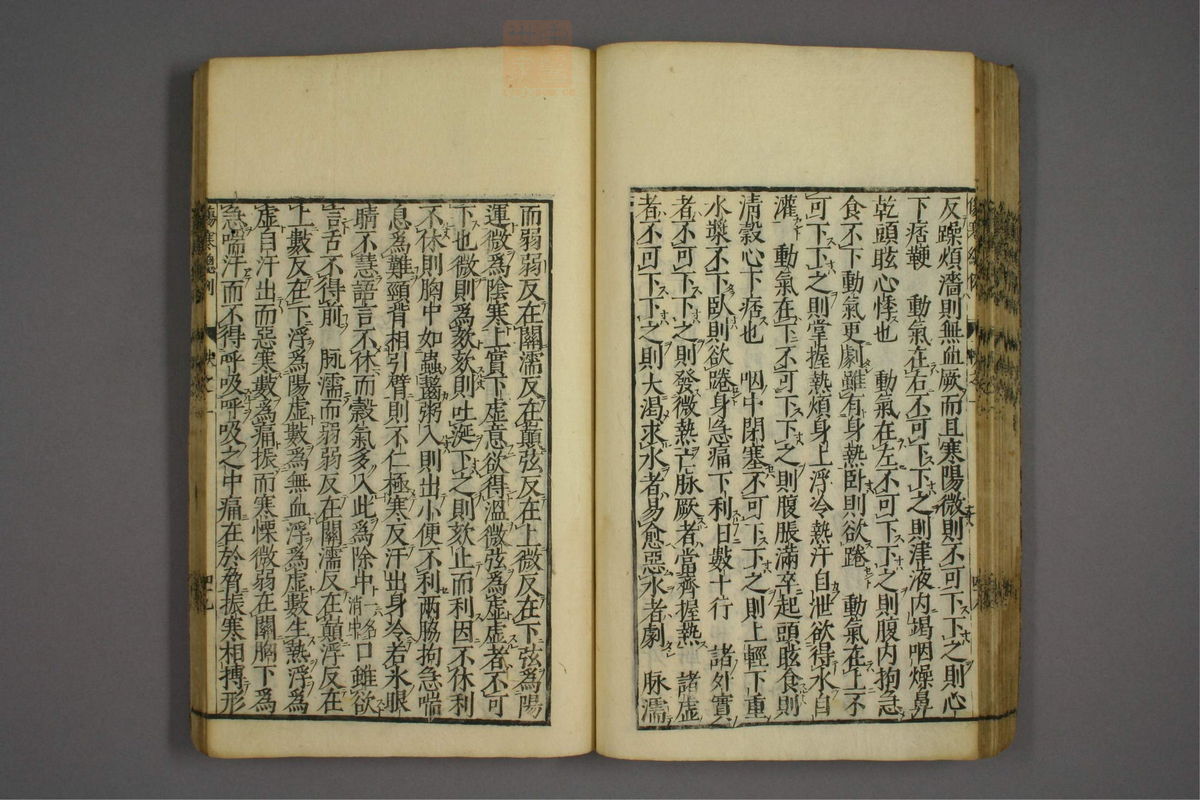 反躁煩濇則無血厥而且寒陽微則不可下下之則心
下痞鞕　動氣在右不可下下之則津液內竭咽燥鼻
乾頭眩心悸也　動氣在左不可下下之則腹內拘急
食不下動氣更劇雖有身熱卧則欲踡　動氣在上不
可下下之則掌握熱煩身上浮冷熱汗自泄欲得水自
灌　動氣在下不可下下之則腹脹滿卒起頭眩食則
清穀心下痞也　咽中閉塞不可下下之則上輕下重
水漿不下臥則欲踡身急痛下利日數十行　諸外實
者不可下下之則發微熱亡脉厥者當齊握熱　諸虛
者不可下下之則大渴求水者易愈惡水者劇　脉濡
而弱弱反在關濡反在巔弦反在上微反在下弦爲陽
運微爲陰寒上實下虛意欲得溫微弦爲虛虛者不可
下也微則爲欬欬則吐涎下之則欬止而利因不休利
不休則胸中如蟲齧粥入則出小便不利兩脇拘急喘
息爲難頸背相引臂則不仁極寒反汗出身冷若氷眼
睛不慧語言不休而穀氣多入此爲除中口雖欲
言舌不得前　脉濡而弱弱反在關濡反在巔浮反在
上數反在下浮爲陽虛數爲無血浮爲虛數生熱浮爲
虛自汗出而惡寒數爲痛振而寒慄微弱在關胸下爲
急喘汗而不得呼吸呼吸之中痛在於脅振寒相搏形
傷寒總例